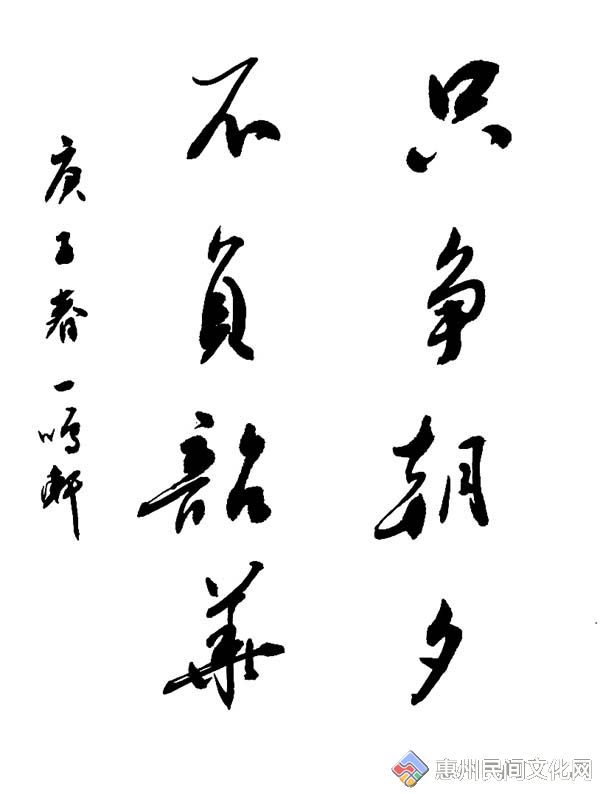 只争朝夕
不负韶华
庚子春一鸣轩
惠州民间文化网